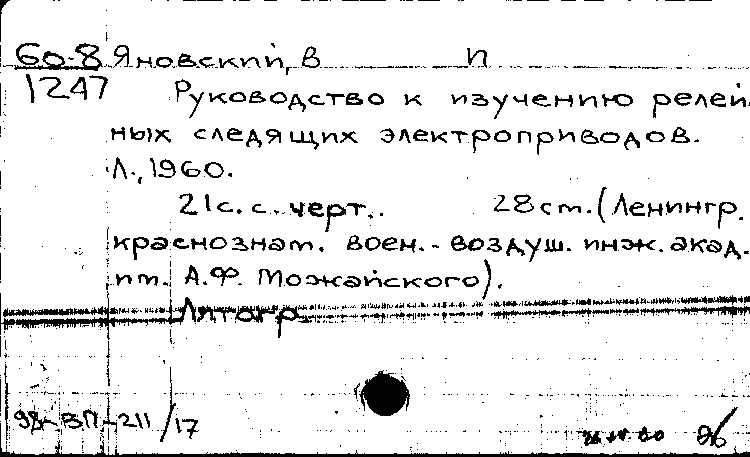 60-8 Яновский, В П
1247 Руководство к изучению релей-
ных следящих электроприводов.
Л., 1960.
21с. с черт. 28 ст. (Ленингр.
краснознам. воен.-воздуш. инж. акад.
им. А.Ф. Можайского).
Литогр.
98-ВП-211/17